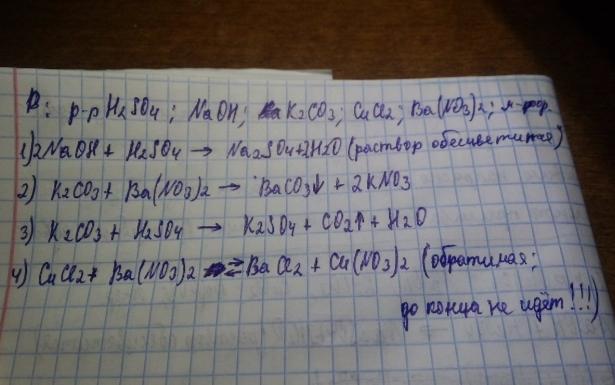 Р: р-р H2SO4; NaOH; K2CO3; CuCl2; Ba(NO3)2;
1) 2NaOH + H2SO4 → Na2SO4+2H2O (раствор обесцветился)
2) K2CO3 + Ba(NO3)2 → BaCO3↓ + 2KNO3
3) K2CO3 + H2SO4 → K2SO4 + CO2↑ + H2O
4) CuCl2 + Ba(NO3)2 ⇄ BaCl2 + Cu(NO3)2 (обратимая;
до конца не идёт!!!)